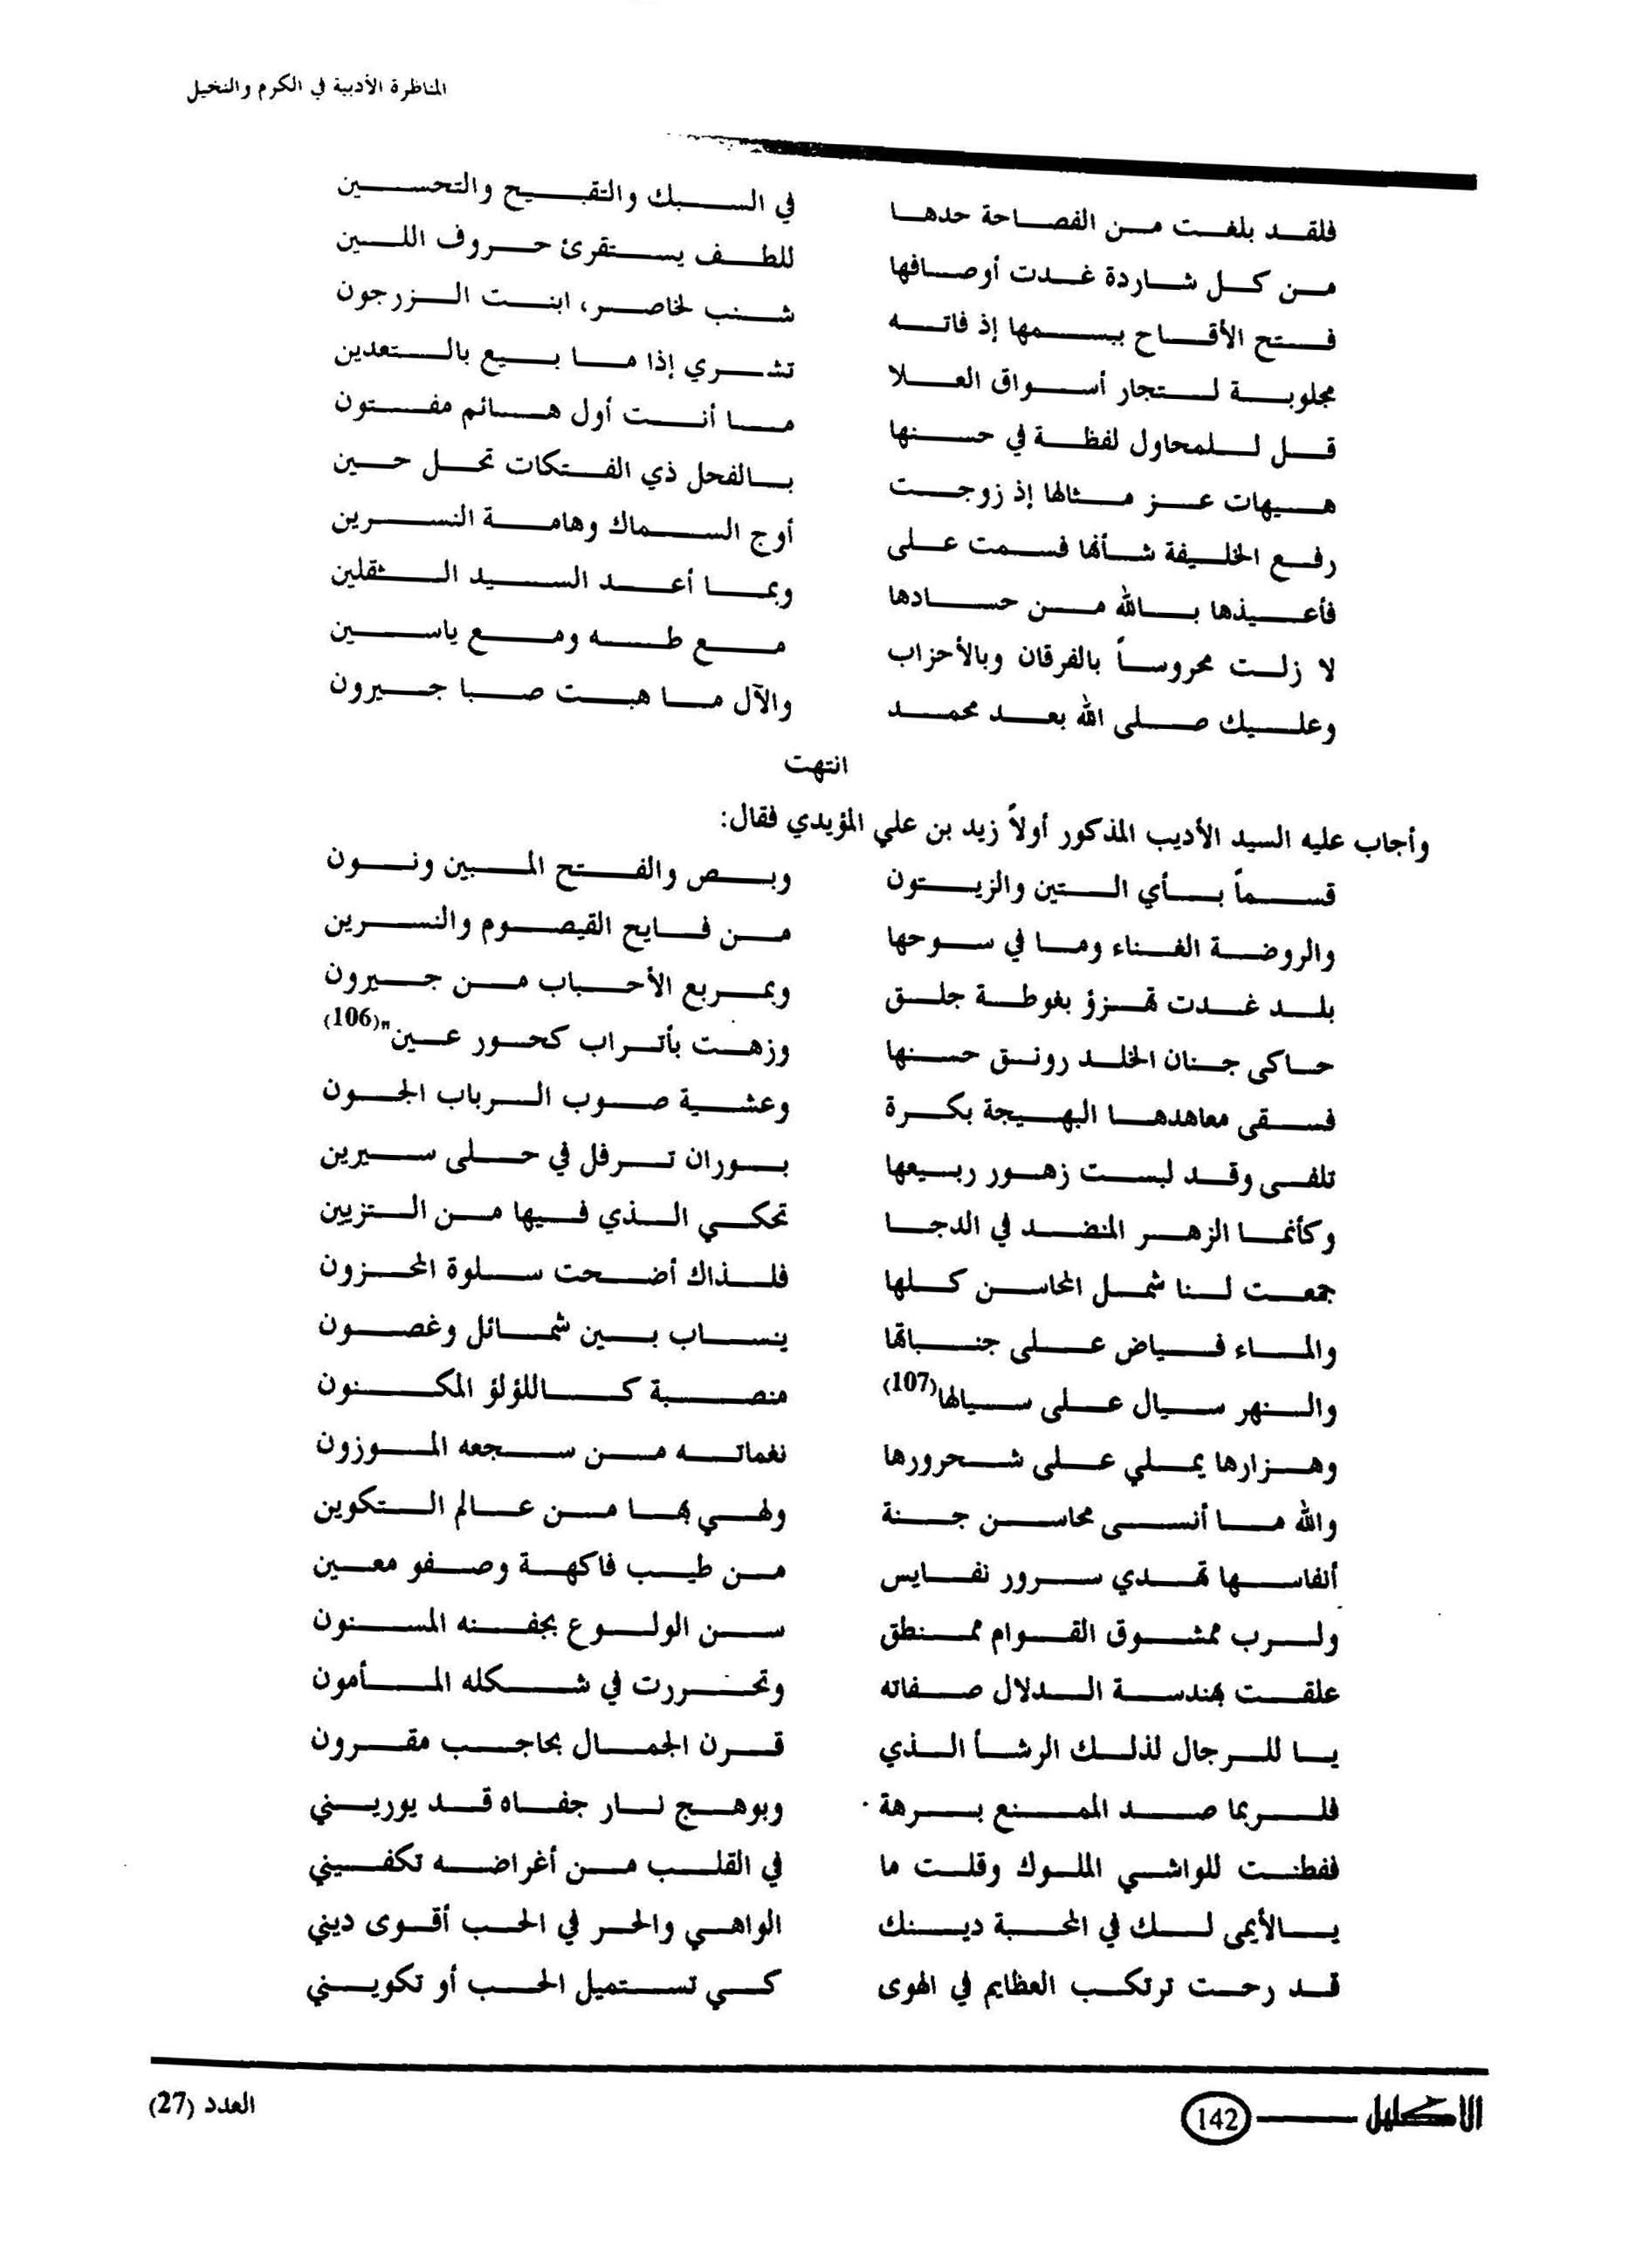 المناظرة الأدبية في الكرم والنخيل
فلقد بلغت من الفصاحة حدها في السبك والتقبيح والتحسين
من كل شاردة غدت أوصافها للطف يستقرئ حروف اللين
فتح الأقاح ببسمها إذ فاته شنب لخاصر، ابنت الزرجون
مجلوبة لتجار أسواق العلا تشري إذا ما بيع بالتعدين
قل للمحاول لفظة في حسنها ما أنت أول هائم مفتون
هيهات عز مثالها إذ زوجت بالفحل ذي الفتكات تحل حين
رفع الخليفة شأنها فسمت على أوج السماك وهامة النسرين
فأعيذها بالله من حسادها وبما أعد السيد الثقلين
لا زلت محروساً بالفرقان وبالأحزاب مع طه ومع ياسين
وعليك صلى الله بعد محمد والآل ما هبت صبا جيرون
انتهت
وأجاب عليه السيد الأديب المذكور أولاً زيد بن علي المؤيدي فقال:
قسماً بأي التين والزيتون وبص والفتح المبين ونون
والروضة الغناء وما في سوحها من فايح القيصوم والنسرين
بلد غدت تهزؤ بغوطة جلق وبمربع الأحباب من جيرون
حاكى جنان الخلد رونق حسنها وزهت بأتراب كحور عين"(106)
فسقى معاهدها البهيجة بكرة وعشية صوب الرباب الجون
تلفى وقد لبست زهور ربيعها بوران ترفل في حلى سيرين
وكأنما الزهر المنضد في الدجا تحكي الذي فيها من التزيين
جمعت لنا شمل المحاسن كلها فلذاك أضحت سلوة المحزون
والماء فياض على جنباتها ينساب بين شمائل وغصون
والنهر سيال على سيالها(107) منصبة كاللؤلؤ المكنون
وهزارها يملي على شحرورها نغماته من سجعه الموزون
والله ما أنسى محاسن جنة ولهي بها من عالم التكوين
أنفاسها تهدي سرور نفايس من طيب فاكهة وصفو معين
ولرب ممشوق القوام ممنطق سن الولوع بجفنه المسنون
علقت بهندسة الدلال صفاته وتحررت في شكله المأمون
يا للرجال لذلك الرشأ الذي قرن الجمال بحاجب مقرون
فلربما صد الممنع برهة وبوهج نار جفاه قد يوريني
ففطنت للواشي الملوك وقلت ما في القلب من أغراضه تكفيني
يالأيمى لك في المحبة دينك الواهي والحر في الحب أقوى ديني
قد رحت ترتكب العظايم في الهوى كي تستميل الحب أو تكويني
الاكليل 142 العدد (27)